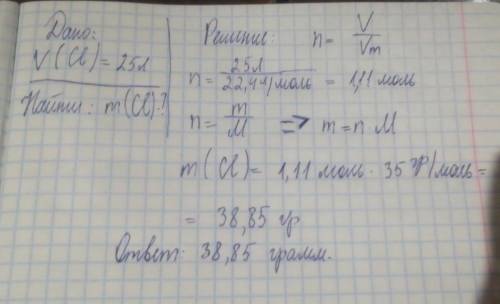 Дано:
V(Cl)=25л
Найти: m(Cl)-?
Решение: n= V/Vm
n= 25л/22,4л/моль = 1,11 моль
n= m/M => m=n·M
m(Cl)= 1,11 моль · 35 гр/моль=
= 38,85 гр
Ответ: 38,85 грамм.